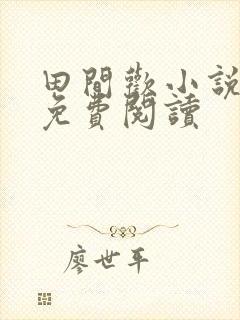 田間歡小說
免費閱讀
廖世平